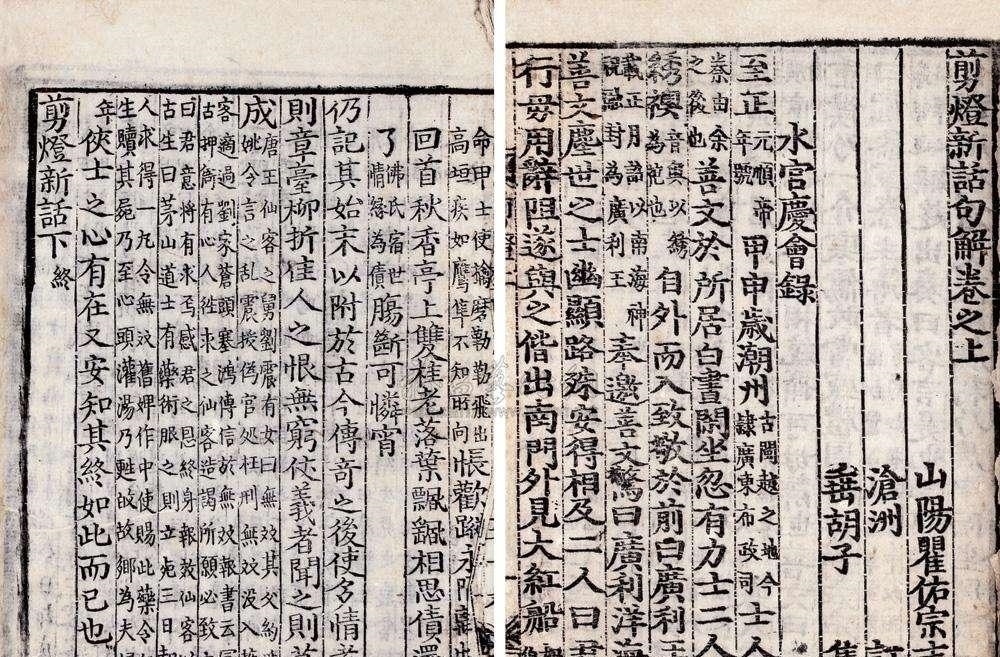 剪燈新話句解卷之上
山陽瞿佑宗
滄洲
垂胡子
水宮慶會錄
至正元順帝年號甲申歲潮州古閩越之地今隸廣東布政司士人
秦由余之後也善文於所居白書閑坐忽有力士二人
綉襖音奧以綉為袍也自外而入致敬於前白廣利王
載正月詔以南海神祝封為廣利王奉邀善文驚曰廣利洋海
善文塵世之士幽顯路殊安得相及二人曰君
行毋用辭阻遂與之偕出南門外見大紅船
命甲士使擒磨勒勒飛出高垣疾如鷹隼不知所向帳歡蹤永隔
回首秋香亭上雙桂老落葉飄飄相思債還
了佛氏宿世情緣為債膓斷可憐宵
仍記其始末以附於古今傳奇之後使多情者
則章臺柳折佳人之恨無窮仗義者聞之則
成唐王仙客之舅劉震有女曰無双其父約
姚令言之乱震授偽官処枉刑無双没入
客適過劉家蒼頭塞鴻傳信於無双報書云
古押衙有心人徃求之仙客造謁所願必致
曰君意將有求焉感君之恩終身報效仙客
古生曰茅山道士有藥術服之則立死三日
人求得一丸令無双舊婢作中使賜此藥令
生贖其屍乃至心頭灌湯乃甦故歸鄉為夫
年俠士之心有在又安知其終如此而已也
剪燈新話下終